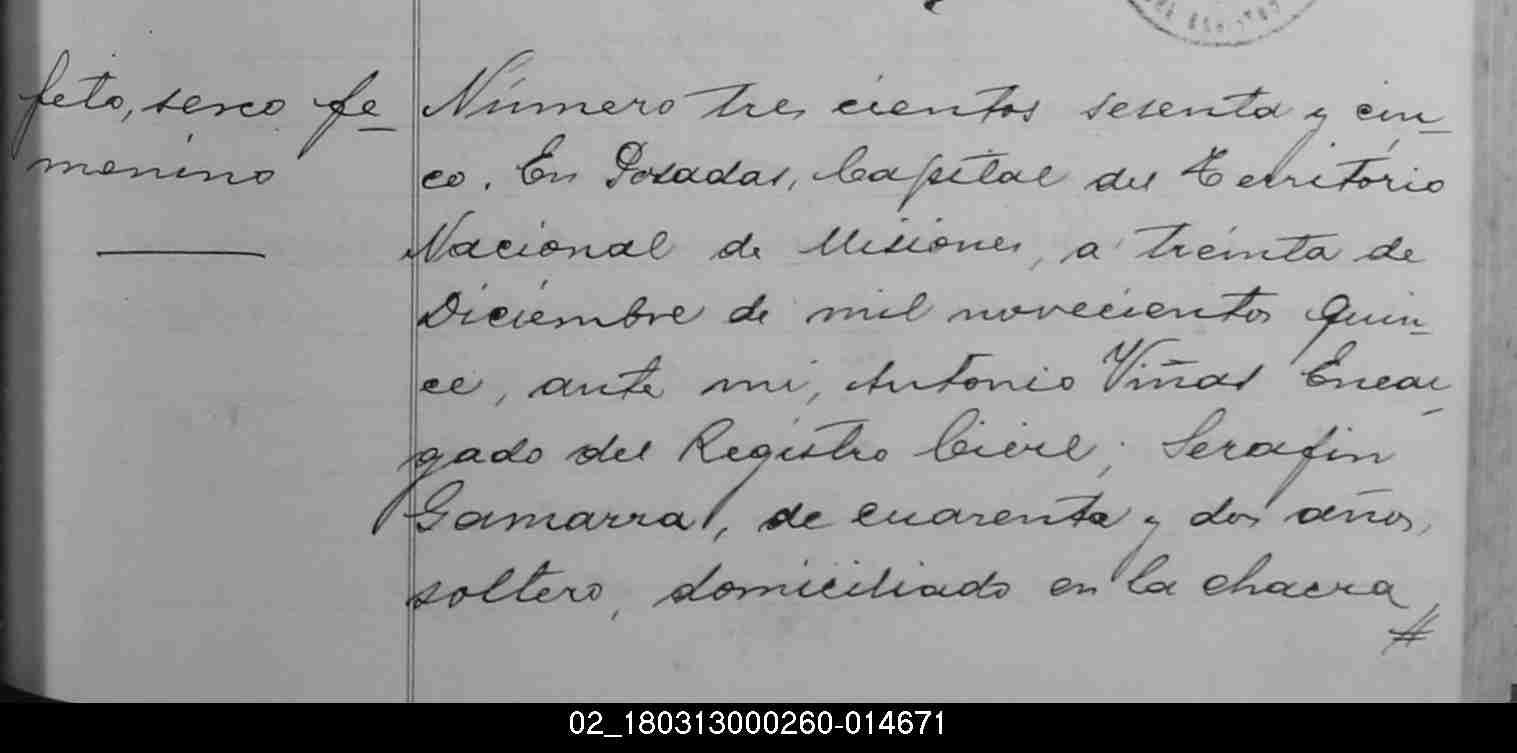 feto, sexo fe_
menino
Número tres cientos sesenta y cin_
co. En Posadas, Capital del Territorio
Nacional de Misiones, a treinta de
Diciembre de mil novecientos quin_
ce, ante mi, Antonio Viñas Encar_
gado del Registro Civil; Serafin
Gamarra, de cuarenta y dos años,
soltero, domiciliado en la chacra,
#
02_180313000260-014671